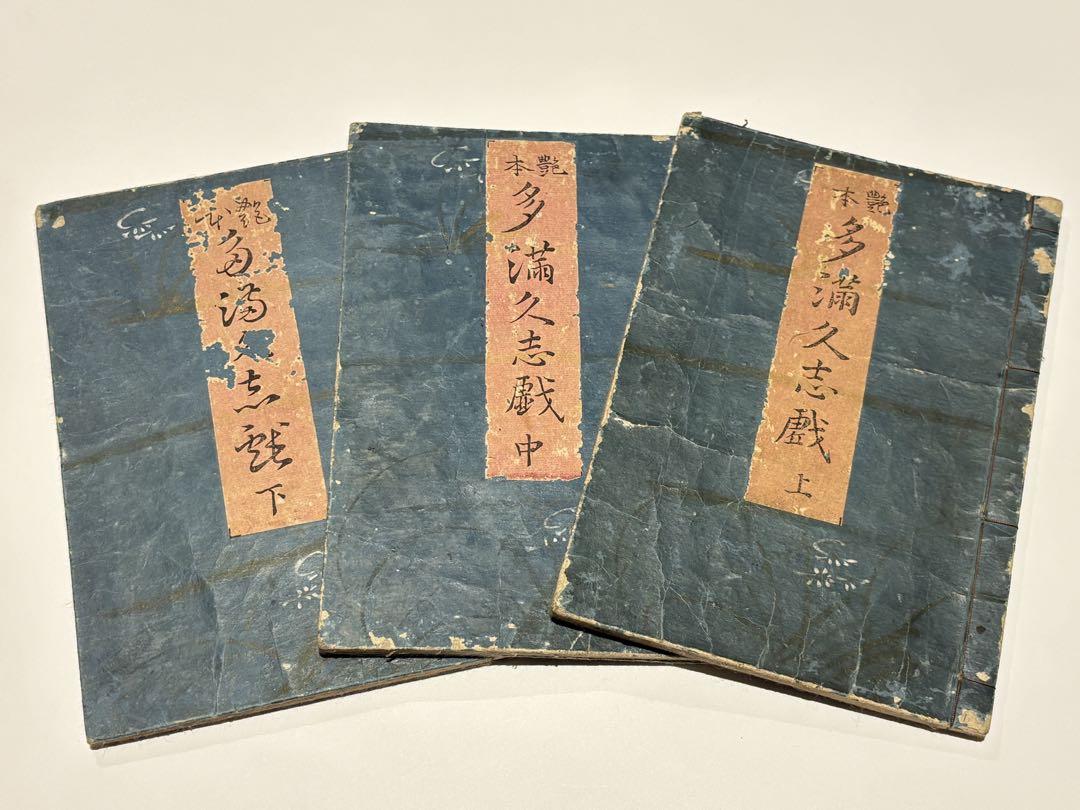 艶本 多満久志戯 上
艶本 多満久志戯 中
艶本 多満久志戯 下